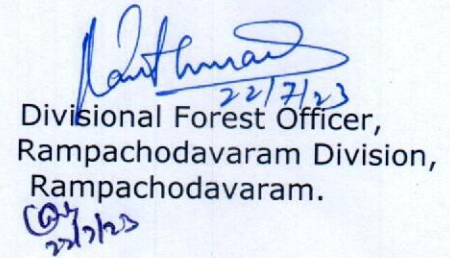 22/7/23
Divisional Forest Officer,
Rampachodavaram Division,
Rampachodavaram.
22/7/23